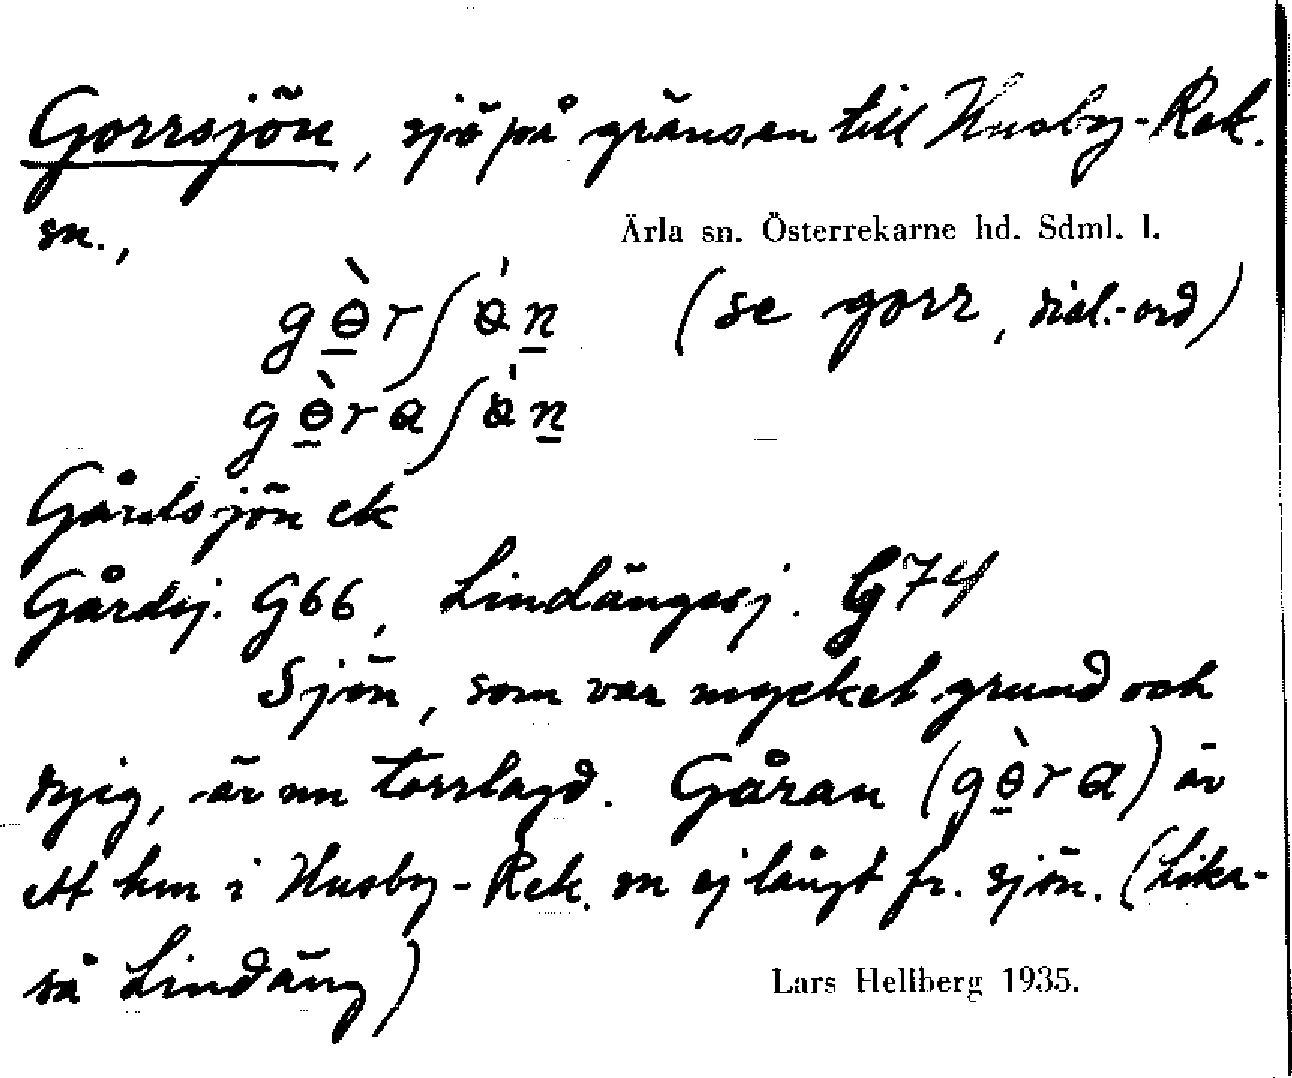 Gorrsjön, sjö på gränsen till Husby-Rek.
sn.,
Ärla sn. Österrekarne hd. Sdml. l.
gɵ̀rʃɵ́n (se gorr, dial.-ord)
gɵ̀raʃɵ́n
Gårdsjön ek
Gårdsj. G66, Lindängssj. G74
Sjön, som var mycket grund och
dyig, är nu torrlagd. Gåran (gɵ̀ra) är
ett hm i Husby-Rek. sn ej långt fr. sjön. (Lika-
så Lindäng)
Lars Hellberg 1935.